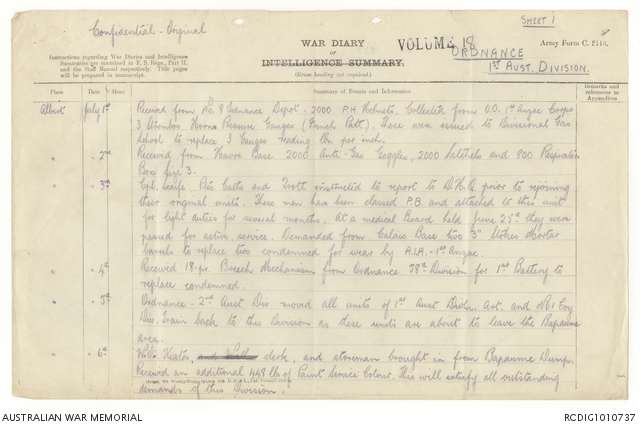 SHEET 1
Confidential - Original
WAR DIARY VOLUME 18
Army Form C. 2118.
or
ORDNANCE
INTELLIGENCE SUMMARY.
1ST AUST. DIVISION.
Instructions regarding War Diaries and Intelligence
Summaries are contained in F. S. Regs., Part II.
and the Staff Manual respectively. Title pages
will be prepared in manuscript.
(Erase heading not required).
Place Date Hour Summary of Events and Information Remarks and
references to
Appendices
Albert July 1st Received from No 8 Ordnance Depot - 2000 P.H. Helmets. Collected from O.O. 1st Anzac Corps
3 Pressure Gauges (French Patt). These were issued to Divisional Gas
School to replace 3 Gauges reading lbs per inch.
" " 2nd Received from Havre Base 2000 Anti-Gas Goggles, 2000 Satchels and 800
Boxes size 3.
" " 3rd Cpl. Pte and instructed to report to D.H.Q. prior to rejoining
their original units. These men have been classed P.B. and attached to this unit
for light duties for several months. At a medical Board held June 25th they were
passed for active service. Demanded from Calais Base two 3" Stokes Mortar
barrels to replace two condemned for wear by A.I.A. - 1st Anzac.
" " 4th Received 18-pr Breech Mechanism from Ordnance 58th Division for 1st Battery to
replace condemned.
" " 5th Ordnance - 2nd Aust Div moved all units of 1st Aust Divln. Art. and No 1 Coy
Div. Train back to this Division as these units are about to leave the Bapaume
area.
" " 6th clerk, and storeman brought in from Bapaume Dump.
Received an additional 448 lbs of Paint Service Colour. This will satisfy all outstanding
demands of this Division.
AUSTRALIAN WAR MEMORIAL
RCDIG1010737